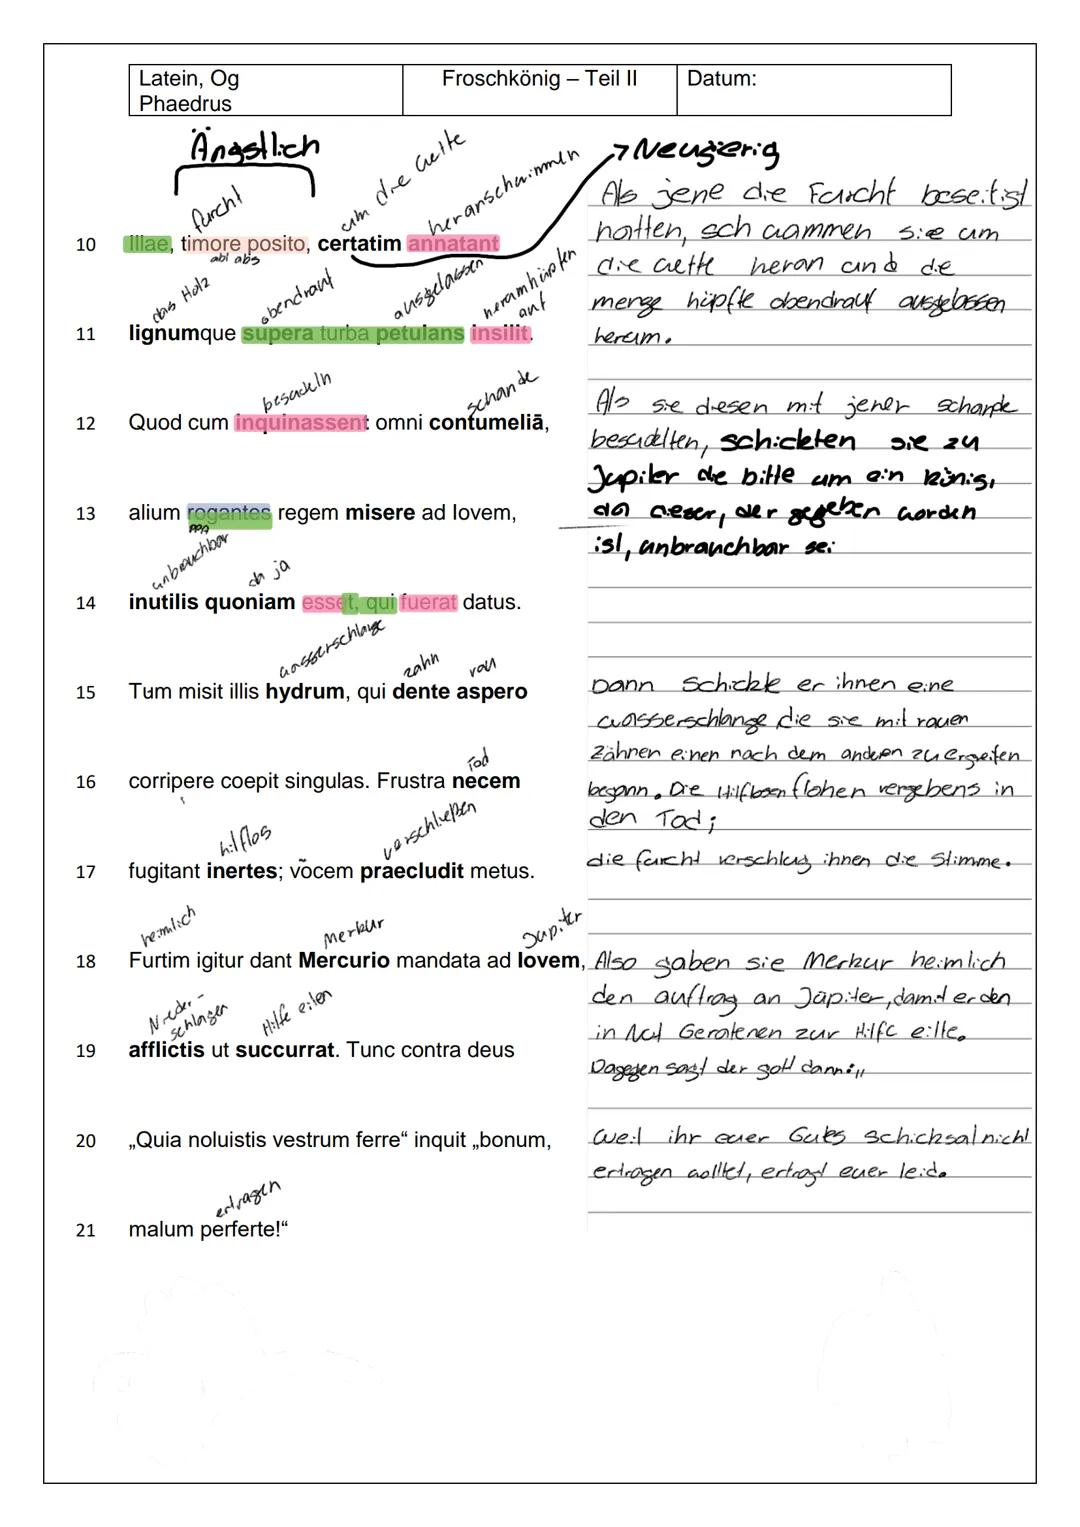 Latein, Og
Phaedrus
Froschkönig – Teil II
Datum:
Ängstlich
→ Neugierig
furcht
um die wette
heranschwimmen
10 Illae, timore posito, certatim annatant
abl abs
das Holz
obendrauf
ausgelassen
herumhüpfen auf
11 lignumque supera turba petulans insilit.
besudeln
schande
12 Quod cum inquinassent omni contumeliā,
13 alium rogantes regem misere ad Iovem,
PPA
unbrauchbar
da ja
14 inutilis quoniam esset, qui fuerat datus.
wasserschlange
zahn
rau
15 Tum misit illis hydrum, qui dente aspero
Tod
16 corripere coepit singulas. Frustra necem
hilflos
verschließen
17 fugitant inertes; vōcem praecludit metus.
heimlich
Merkur
Jupiter
18 Furtim igitur dant Mercurio mandata ad Iovem,
Nieder-
schlagen
Hilfe eilen
19 afflictis ut succurrat. Tunc contra deus
20 „Quia noluistis vestrum ferre“ inquit „bonum,
ertragen
21 malum perferte!“
Als jene die Furcht beseitigt
hatten, schwammen sie um
die wette heran und die
menge hüpfte obendrauf ausgelassen
herum.
Als sie diesen mit jener schande
besudelten, schickten sie zu
Jupiter die bitte um ein könig,
da dieser, der gegeben worden
ist, unbrauchbar sei
Dann schickte er ihnen eine
wasserschlange die sie mit rauen
Zähnen einen nach dem anderen zu ergreifen
begann. Die Hilflosen flohen vergebens in
den Tod;
die furcht verschlug ihnen die Stimme.
Also gaben sie Merkur heimlich
den auftrag an Jupiter, damit er den
in Not Geratenen zur Hilfe eilte.
Dagegen sagt der gott dann:„
Weil ihr euer Gutes schicksal nicht
ertragen wolltet, ertragt euer leid.